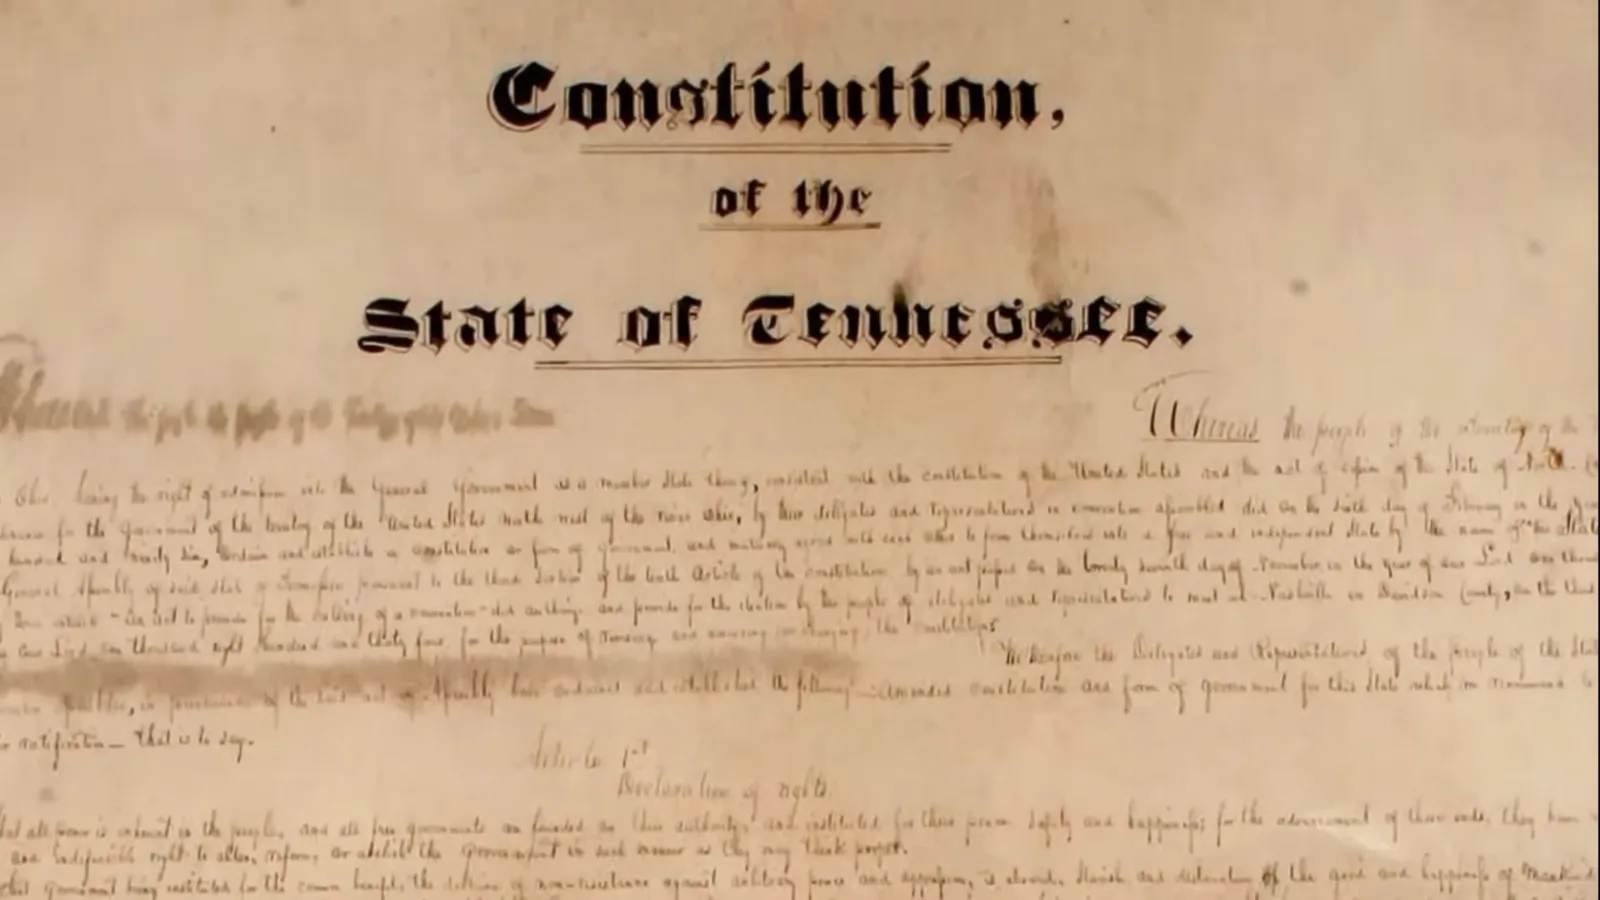 Constitution,
of the
State of Tennessee.
Whereas the people of the Territory of the
having the right of admission into the General Government as a member State thereof, consistent with the constitution of the United States and the act of cession of the State of North
for the Government of the territory of the United States North west of the river Ohio, by their delegates and representatives in convention assembled did on the sixth day of February in the year
hundred and ninety six, ordain and establish a constitution or form of Government, and mutually agreed with each other to form themselves into a free and independent State by the name of the State
General Assembly of said State of Tennessee pursuant to the third Section of the tenth Article of the constitution by an act passed on the twenty seventh day of November, in the year of our Lord one
An act to provide for the calling of a convention did authorize and provide for the election by the people of delegates and representatives to meet at Nashville in Davidson County, on the third
our Lord one thousand eight hundred and thirty four, for the purpose of revising and amending or changing, the constitution
We therefore the Delegates and Representatives of the people of the
in pursuance of the said act of Assembly have ordained and established the following amended constitution and form of government for this State which we recommend to
ratification — that is to say.
Article 1st
Declaration of rights
all power is inherent in the people, and all free governments are founded on their authority, and instituted for their peace safety and happiness; for the advancement of those ends, they have
and indefeasible right to alter, reform, or abolish the Government in such manner as they may think proper.
that Government being instituted for the common benefit, the doctrine of non-resistance against arbitrary power and oppression, is absurd, slavish and destructive of the good and happiness of mankind